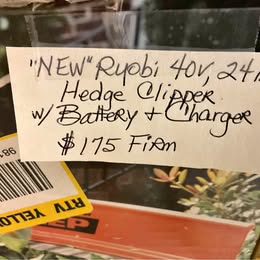 "NEW" Ryobi 40V, 24
Hedge Clipper
w/ Battery + Charger
$175 Firm
981
RTV YELLO
EP